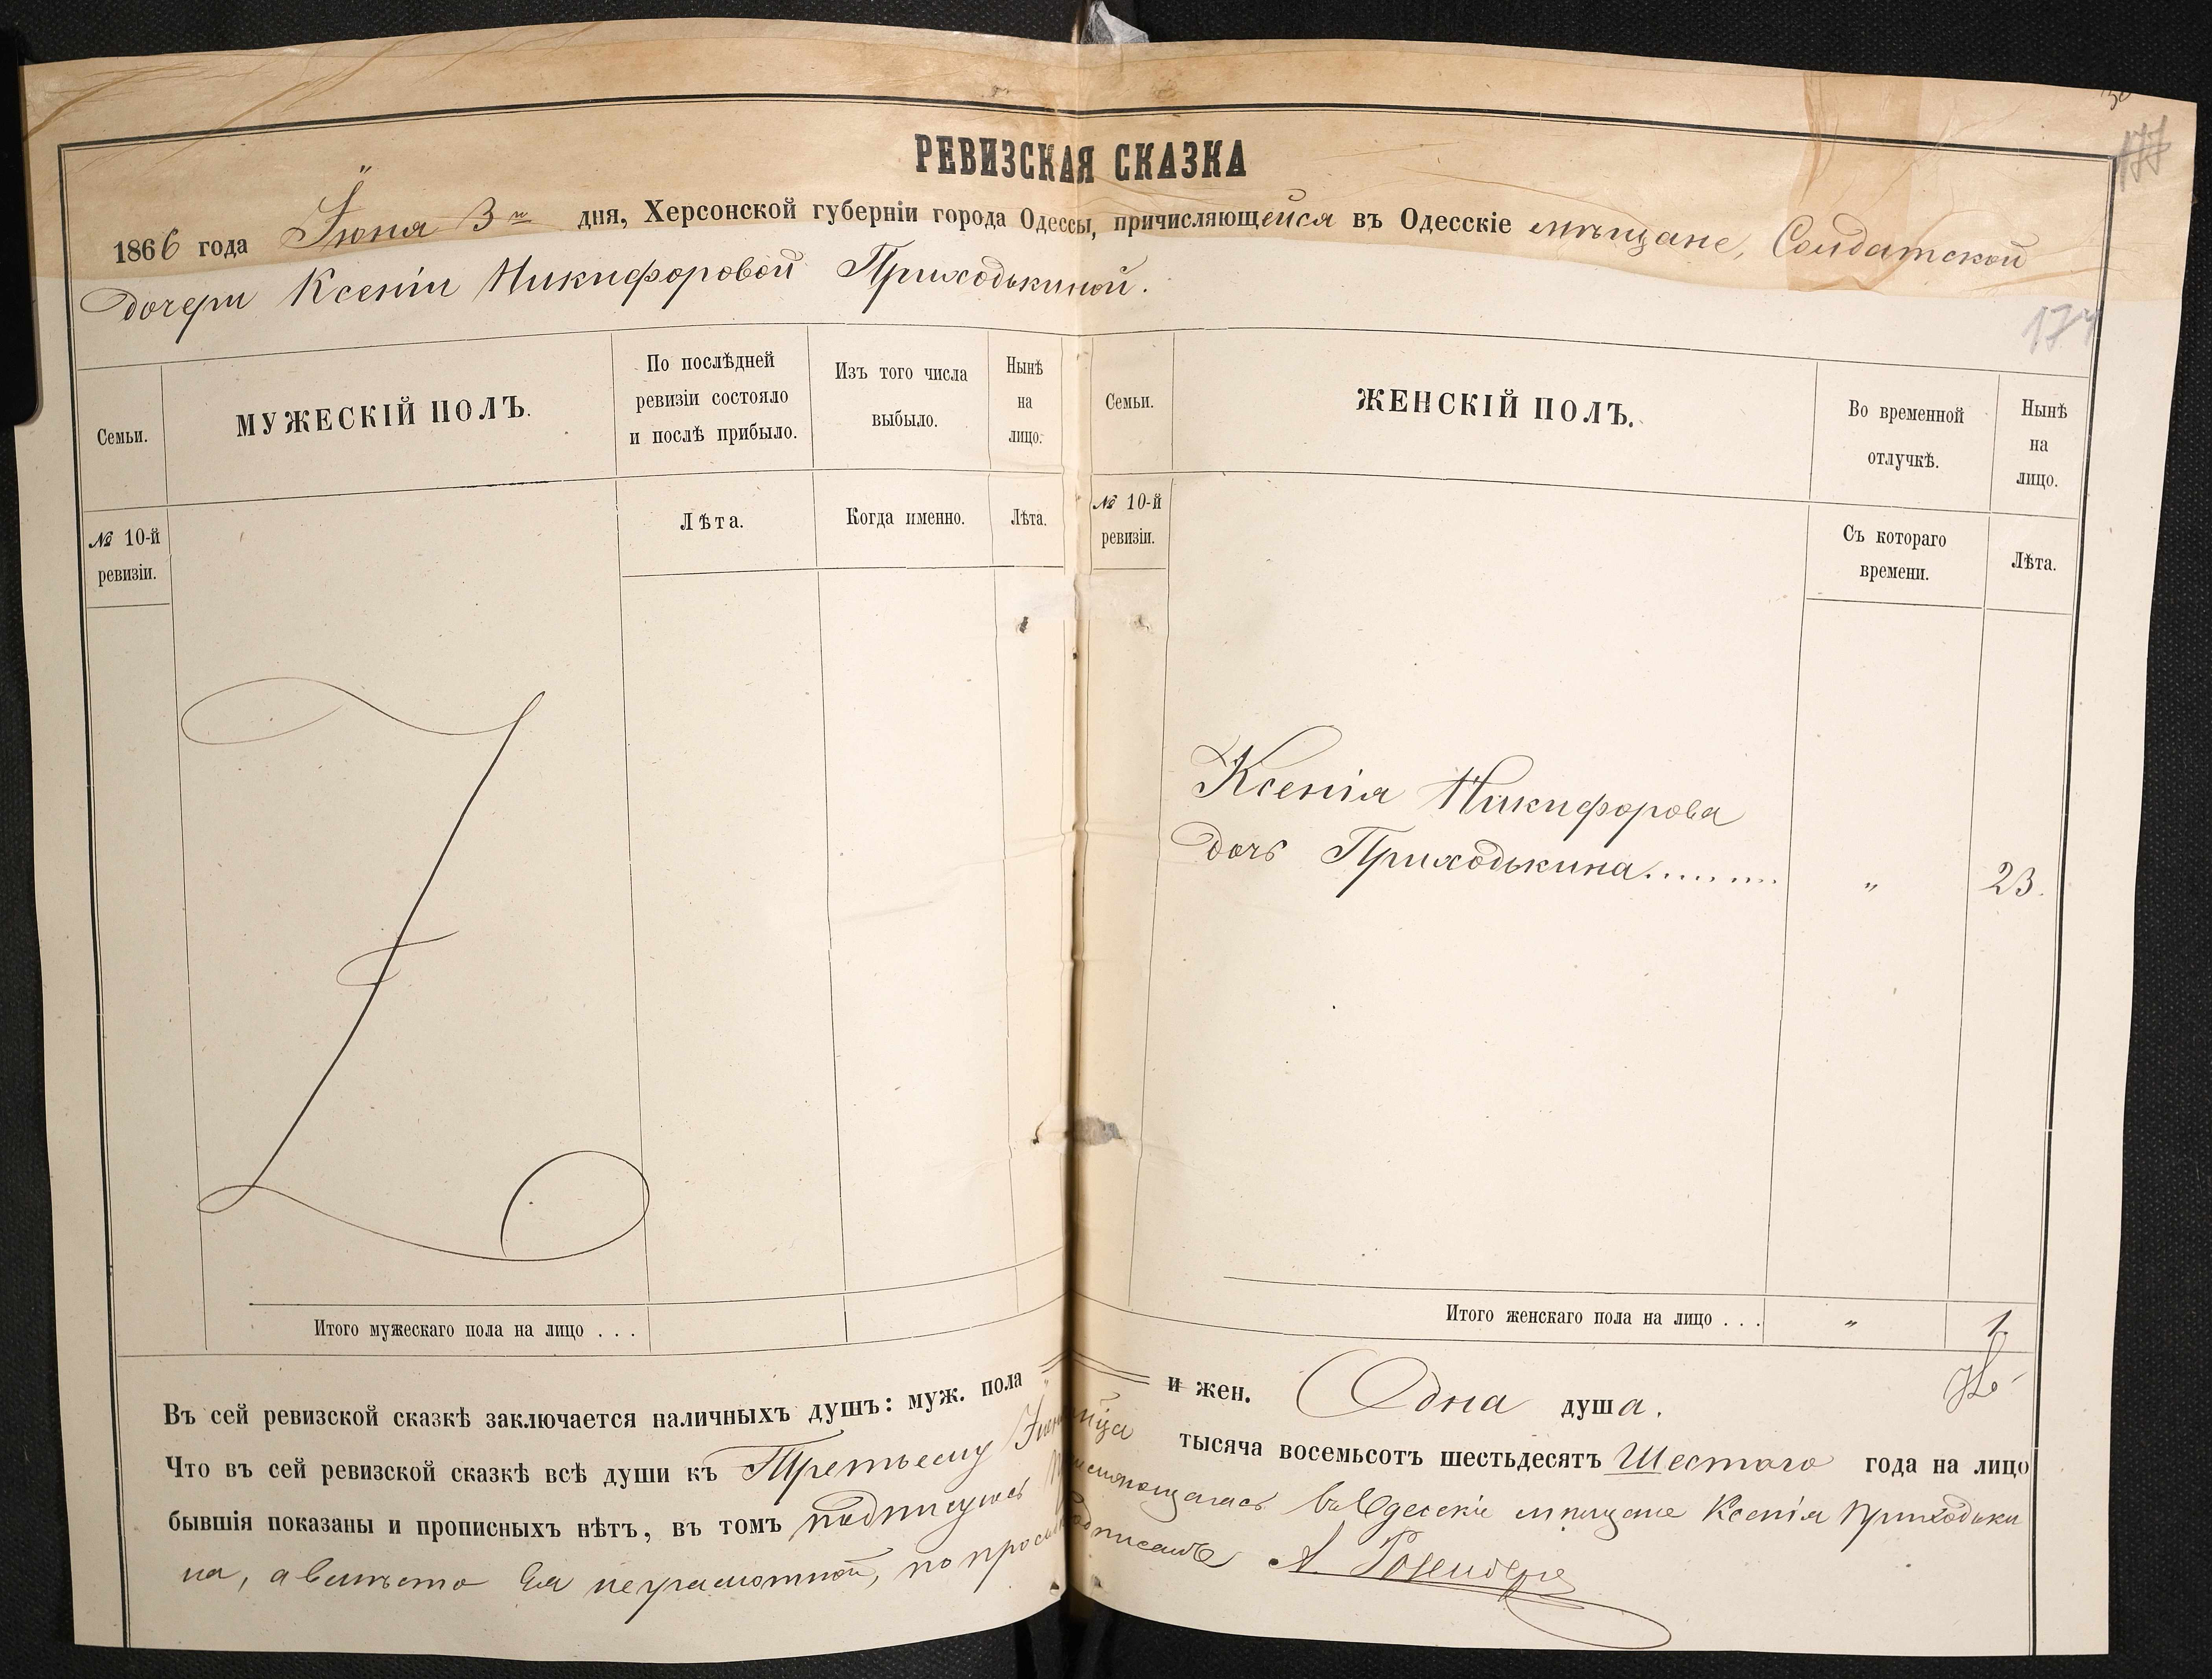 177
РЕВИЗСКАЯ СКАЗКА
1866 года Іюня 3го дня, Херсонской губерніи города Одессы, причисляющейся въ Одесскіе мѣщане, Солдатской
дочери Ксеніи Никифоровой Приходькиной.
174
Семьи.
МУЖЕСКІЙ ПОЛЪ.
По послѣдней
ревизіи состояло
и послѣ прибыло.
Изъ того числа
выбыло.
Нынѣ
на
лицо.
Семьи.
ЖЕНСКІЙ ПОЛЪ.
Во временной
отлучкѣ.
Нынѣ
на
лицо.
№ 10-й
ревизіи.
Лѣта.
Когда именно.
Лѣта.
№ 10-й
ревизіи.
Съ котораго
времени.
Лѣта.
Ксенія Никифорова
дочь Приходькина......... „ 23.
Итого мужескаго пола на лицо . . .
Итого женскаго пола на лицо . . . „ 1.
Въ сей ревизской сказкѣ заключается наличныхъ душъ: муж. пола „ и жен. Одна душа.
Что въ сей ревизской сказкѣ всѣ души къ Третьему Іюня тысяча восемьсотъ шестьдесятъ Шестаго года на лицо
бывшія показаны и прописныхъ нѣтъ, въ томъ подписуюсь въ Одесскіе мѣщане Ксенія Приходьки
на, а вмѣсто Ея неграмотной, по подписалъ А.